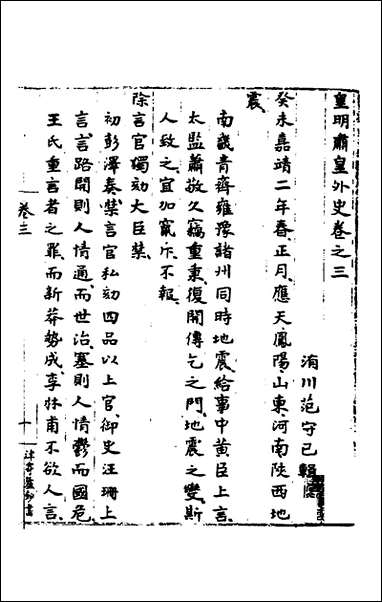 皇明肅皇外史卷之三
洧川范守己輯
癸未嘉靖二年春正月應天鳳陽山東河南陝西地
震
南畿青齊雍豫諸州同時地震給事中黄臣上言
太監蕭敬久竊重秉復開傳乞之門地震之變斯
人致之宜加竄斥不報
除言官獨劾大臣禁
初彭澤奏禁言官私劾四品以上官御史汪珊上
言言路開則人情通而世治塞則人情鬱而國危
王氏重言者之罪而新莽勢成李林甫不欲人言
卷三
一